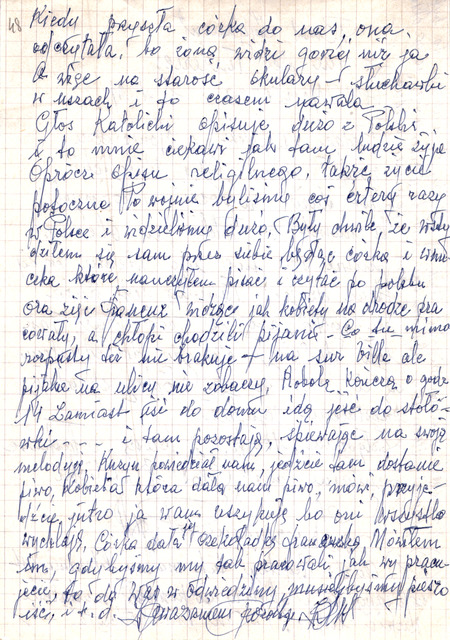 48 Kiedy przyszła córka do nas, ona
odczytała, bo żona widzi gorzej niż ja
A więc na starość okulary – słuchawki
w uszach i to czasem nawala
Głos Katolicki opisuje dużo z Polski
i to mnie ciekawi jak tam ludzie żyją
Oprócz opisu religilnego, także życie
potoczne Po wojnie byliśmy coś cztery razy
w Polsce i widzieliśmy dużo, Były chwile, że wsty-
dziłem się sam przez siebie będąc córka i wnu-
czka które nauczyłem pisać i czytać po polsku
ora zięć Francuz widzące jak kobiety na drodze pra
cowały, a chłopi chodzili pijani – Co tu mimo
rozpusty też nie brakuje – na sur ville ale
pijaka na ulicy nie zobaczy, Robotę kończą o godz
14 Zamiast iść do domu idą jeść do stołó-
wki - - - - i tam pozostają, śpiewając na swoją
melodyję, Kuzyn powiedział nam, jedźcie tam dostanie
piwo, Kobieta która dała nam piwo, mówi, przyje-
dźcie jutro ja wam uszykuję bo oni wszystko
wychlają, Córka dała jej czekoladkę francuską Mówiłem
im, gdybyśmy my tak pracowali jak wy pracu-
jecie, to do was w odwiedziny musielibyśmy pieszo
iść, i t. d.